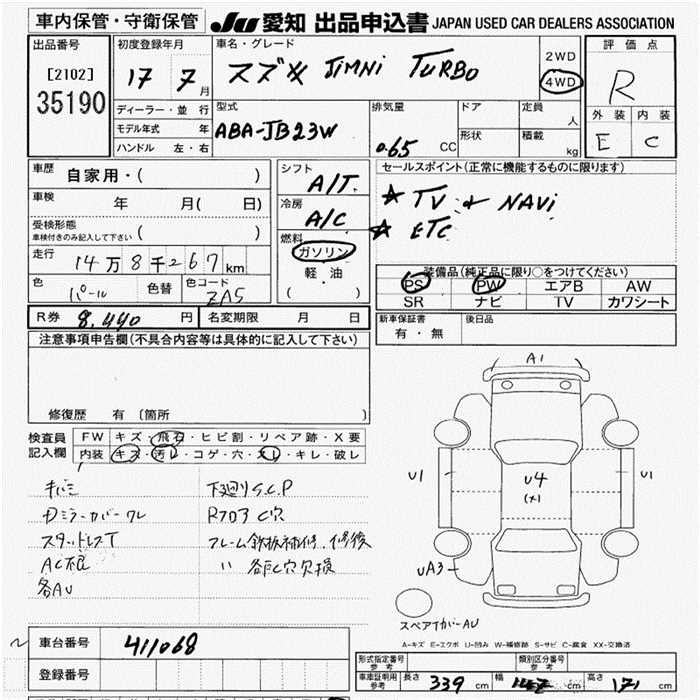 車内保管・守衛保管 JU 愛知 出品申込書 JAPAN USED CAR DEALERS ASSOCIATION
出品番号 初度登録年月 車名・グレード 評価点
[2102] 17 7月 スズキ JIMNi TURBO 2WD
35190 4WD R
ディーラー・並行 型式 排気量 ドア 定員 外装 内装
モデル年式 年 ABA-JB23W 人
ハンドル 左・右 0.65 CC 形状 積載 kg E C
車歴 自家用・( ) シフト A/T. セールスポイント(正常に機能するものに限ります)
車検 年 月( 日) 冷房 A/C ☆ TV & NAVi
受検形態 ☆ ETC
車検付きのみ記入して下さい ( ) 燃料
走行 14万8千267km ガソリン
軽・油 装備品(純正品に限り○をつけてください)
色 パール 色替 色コード ZA5 ( ) PS PW エアB AW
SR ナビ TV カワシート
R券 8,440 円 名変期限 月 日 新車保証書 後日品
有・無
注意事項申告欄(不具合内容等は具体的に記入して下さい)
A1
修復歴 有 (箇所 )
検査員 FW キズ・飛石・ヒビ割・リペア跡・X要
記入欄 内装 キズ・汚レ・コゲ・穴・スレ・キレ・破レ
U1 U4 U1
(メ)
キバミ 下廻りS.C.P
Dミラーカバーワレ Rフロア C穴
スタッドレスT フレーム鉄板補修、修復
AC根 〃 各所C穴欠損
各AU
UA3
スペアTカバーAU
A-キズ E-エクボ U-凹み W-補修跡 S-サビ C-腐食 XX-交換済
車台番号 411068
形式指定番号 参考 類別区分番号 参考
登録番号 車庫証明用 参考 長さ 339 cm 幅 147 cm 高さ 171 cm